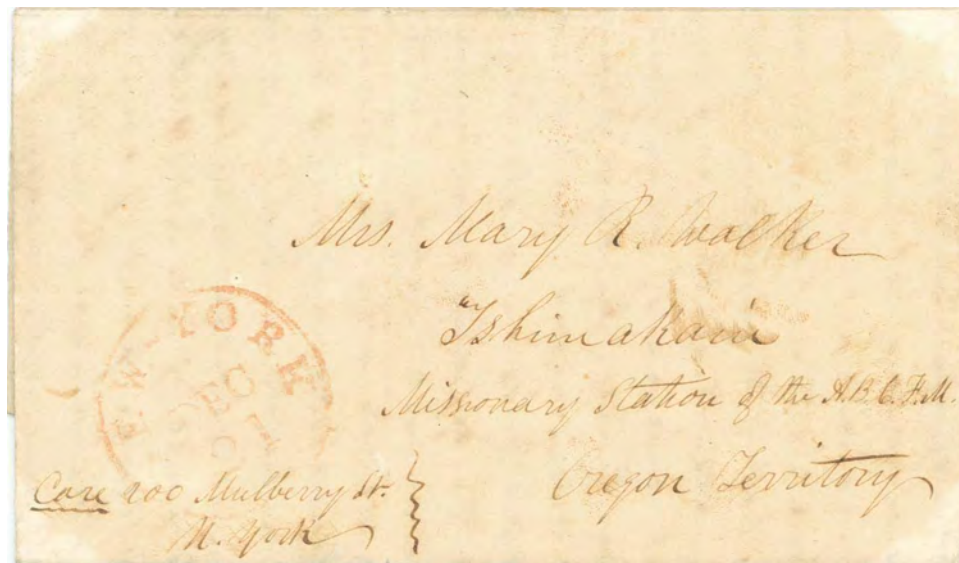 Mrs. Mary R. Walker
Tshimakain
Missionary Station of the A.B.C.F.M.
Oregon Territory
EW-YORK
DEC
Care 200 Mulberry St.
N. York